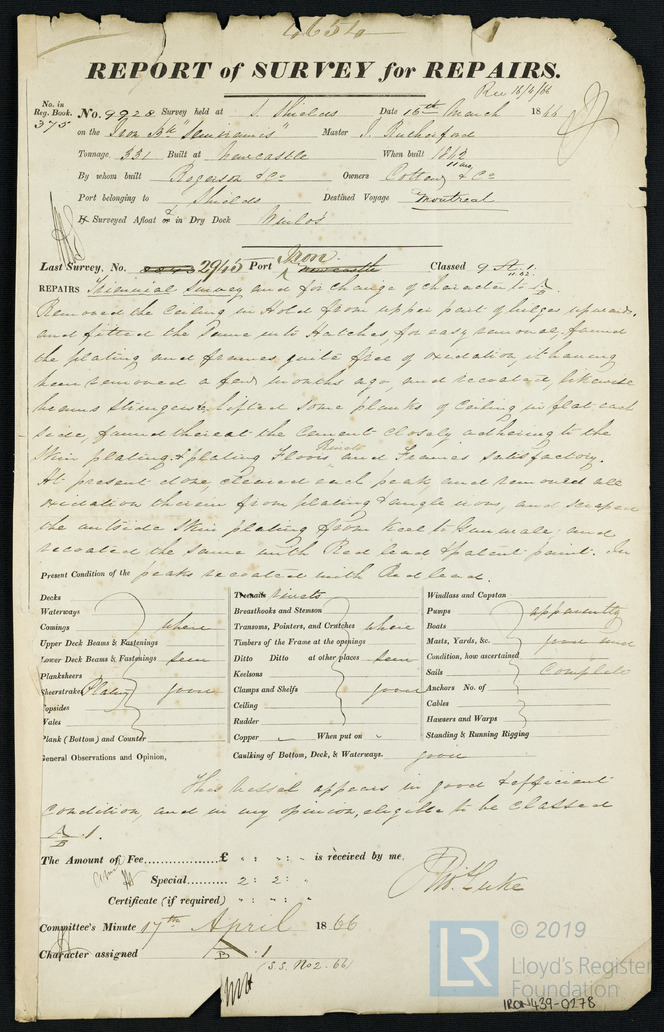 4654
REPORT of SURVEY for REPAIRS.
Rec 18/4/66
No. in Reg. Book. No. 9928 Survey held at S. Shields Date 15th March 1866
375 on the Iron Bk "Semiramis" Master J. Rutherford
Tonnage 331 Built at Newcastle When built 1862
11 mo
By whom built Rogerson & Co Owners Cotten & Co
Port belonging to Shields Destined Voyage Montreal
If Surveyed Afloat or in Dry Dock
Last Survey, No. 2945 Port Iron Newcastle Classed 9 St. 1.
11.62.
REPAIRS Triennial Survey and for change of character to A/B.
Removed the Ceiling in Hold from upper part of bilges upwards,
and fitted the same into Hatches, for easy removal, found
the plating and frames quite free of oxidation, it having
been removed a few months ago, and recoated, likewise
beams stringers &c. lifted some planks of Ceiling in flat each
side, found thereat the Cement closely adhering to the
Skin plating, & plating Floors, Rivets and Frames satisfactory.
At present done, cleaned each peak, and removed all
oxidation therein from plating & angle irons, and scraped
the outside Skin plating from Keel to Gunwale, and
recoated the same with Red lead & patent paint. In
Present Condition of the peaks recoated with Red lead.
Decks Treenails Rivets Windlass and Capstan
Waterways Breasthooks and Stemson Pumps apparently
Comings where Transoms, Pointers, and Crutches where Boats
Upper Deck Beams & Fastenings Timbers of the Frame at the openings Masts, Yards, &c. good and
Lower Deck Beams & Fastenings seen Ditto Ditto at other places seen Condition, how ascertained
Planksheers Keelsons Sails Complete
Sheerstrakes Plating good Clamps and Shelfs good Anchors No. of
Topsides Ceiling Cables
Wales Rudder Hawsers and Warps
Plank (Bottom) and Counter Copper When put on Standing & Running Rigging
General Observations and Opinion, Caulking of Bottom, Deck, & Waterways. good
This vessel appears in good & efficient
Condition, and in my opinion, eligible to be Classed
A/B.1.
The Amount of Fee £ " : " : " is received by me,
Special 2 : 2 : "
Certificate (if required) " : " : "
Thos. Luke
Committee's Minute 17th April 1866
Character assigned A/B.1
(S.S. No 2. 66)
LR © 2019
Lloyd's Register
Foundation
IRON439-0278